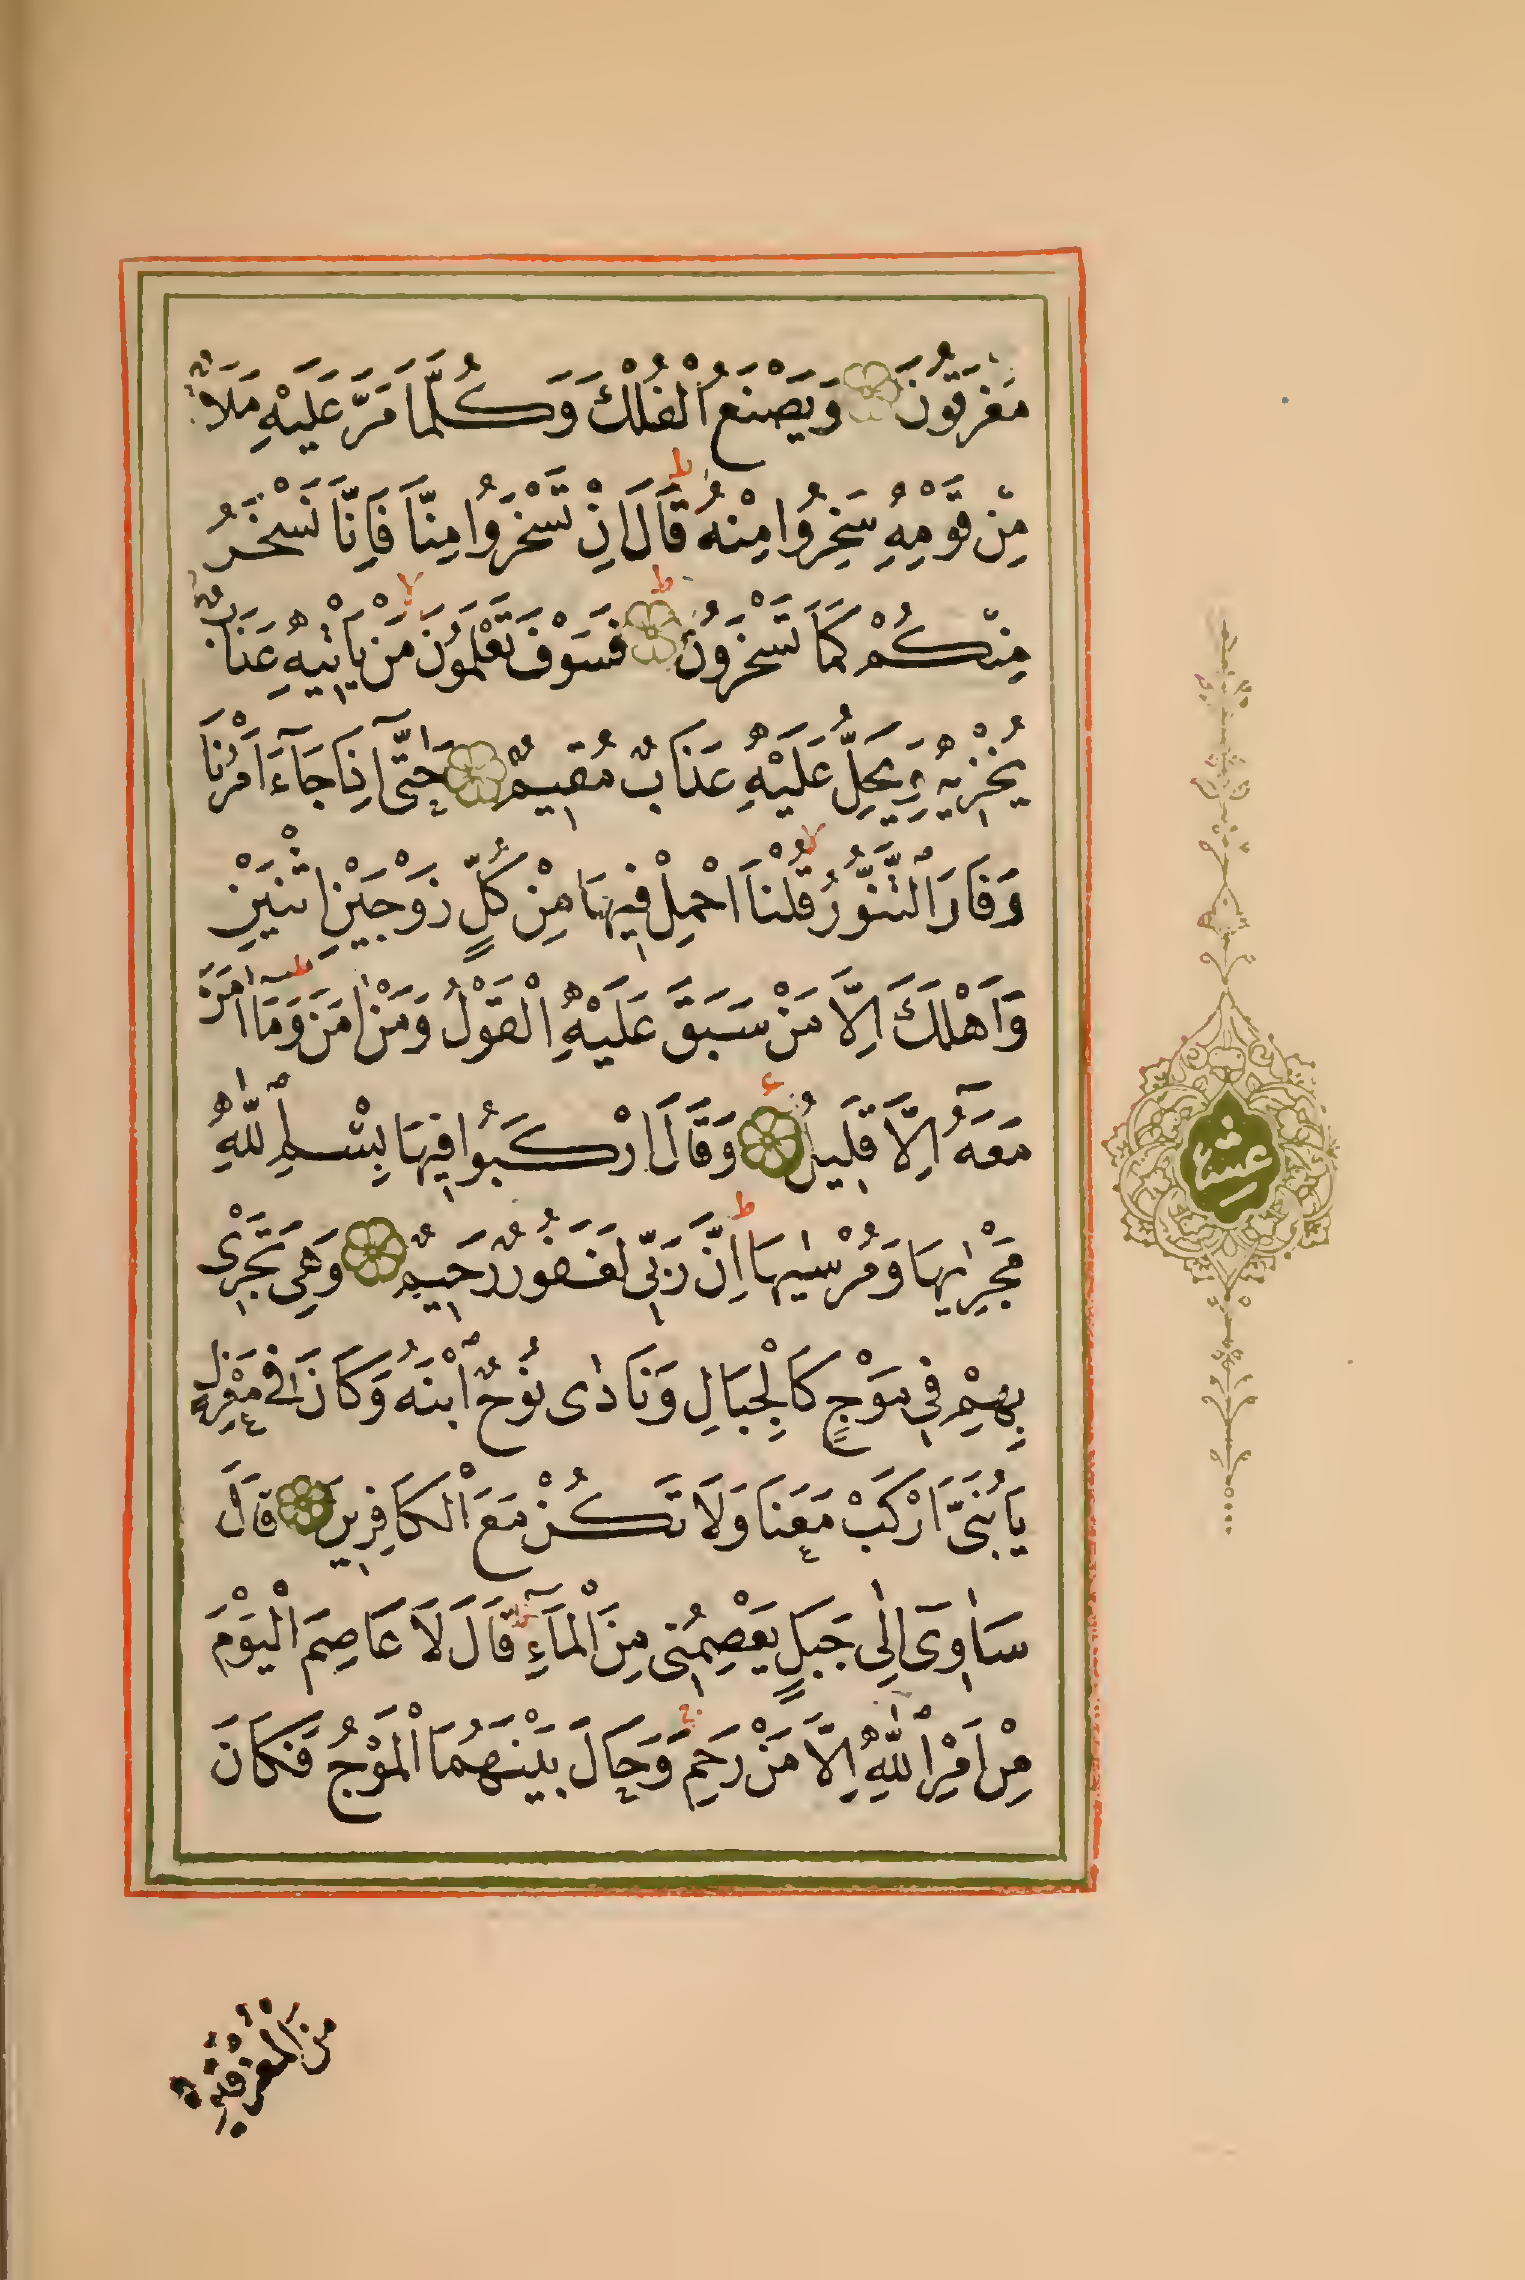 مُغْرَقُونَ وَيَصْنَعُ الْفُلْكَ وَكُلَّمَا مَرَّ عَلَيْهِ مَلَاٌ
مِنْ قَوْمِهِ سَخِرُوا مِنْهُ قَالَ اِنْ تَسْخَرُوا مِنَّا فَاِنَّا نَسْخَرُ
مِنْكُمْ كَمَا تَسْخَرُونَ فَسَوْفَ تَعْلَمُونَ مَنْ يَأْتِيهِ عَذَابٌ
يُخْزِيهِ وَيَحِلُّ عَلَيْهِ عَذَابٌ مُقِيمٌ حَتَّى اِذَا جَاءَ اَمْرُنَا
وَفَارَ التَّنُّورُ قُلْنَا احْمِلْ فِيهَا مِنْ كُلٍّ زَوْجَيْنِ اثْنَيْنِ
وَاَهْلَكَ اِلَّا مَنْ سَبَقَ عَلَيْهِ الْقَوْلُ وَمَنْ اٰمَنَ وَمَا اٰمَنَ
مَعَهُ اِلَّا قَلِيلٌ وَقَالَ ارْكَبُوا فِيهَا بِسْمِ اللّٰهِ
مَجْرٰيهَا وَمُرْسٰيهَا اِنَّ رَبِّى لَغَفُورٌ رَحِيمٌ وَهِىَ تَجْرِى
بِهِمْ فِى مَوْجٍ كَالْجِبَالِ وَنَادٰى نُوحٌ ابْنَهُ وَكَانَ فِى مَعْزِلٍ
يَابُنَىَّ ارْكَبْ مَعَنَا وَلَا تَكُنْ مَعَ الْكَافِرِينَ قَالَ
سَاٰوِى اِلٰى جَبَلٍ يَعْصِمُنِى مِنَ الْمَاءِ قَالَ لَا عَاصِمَ الْيَوْمَ
مِنْ اَمْرِ اللّٰهِ اِلَّا مَنْ رَحِمَ وَحَالَ بَيْنَهُمَا الْمَوْجُ فَكَانَ
عشر
مِنَ الْمُغْرَقِينَ